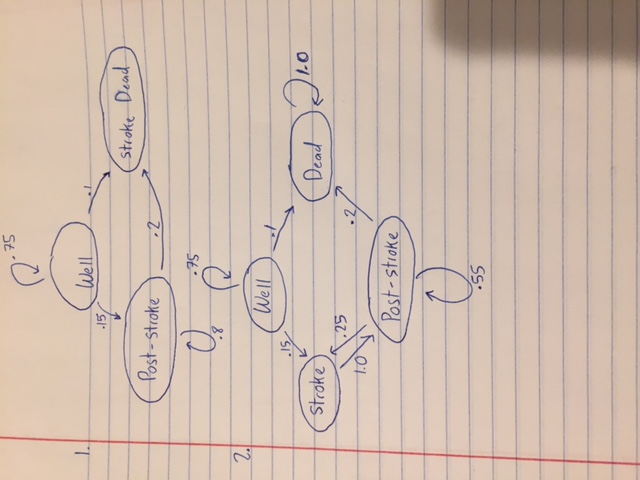 .75
1.
Well
.15
.1
Stroke Dead
Post-stroke
.2
.8
.75
2.
Well
.15
.1
Stroke
Dead
1.0
.25
1.0
.2
Post-stroke
.55